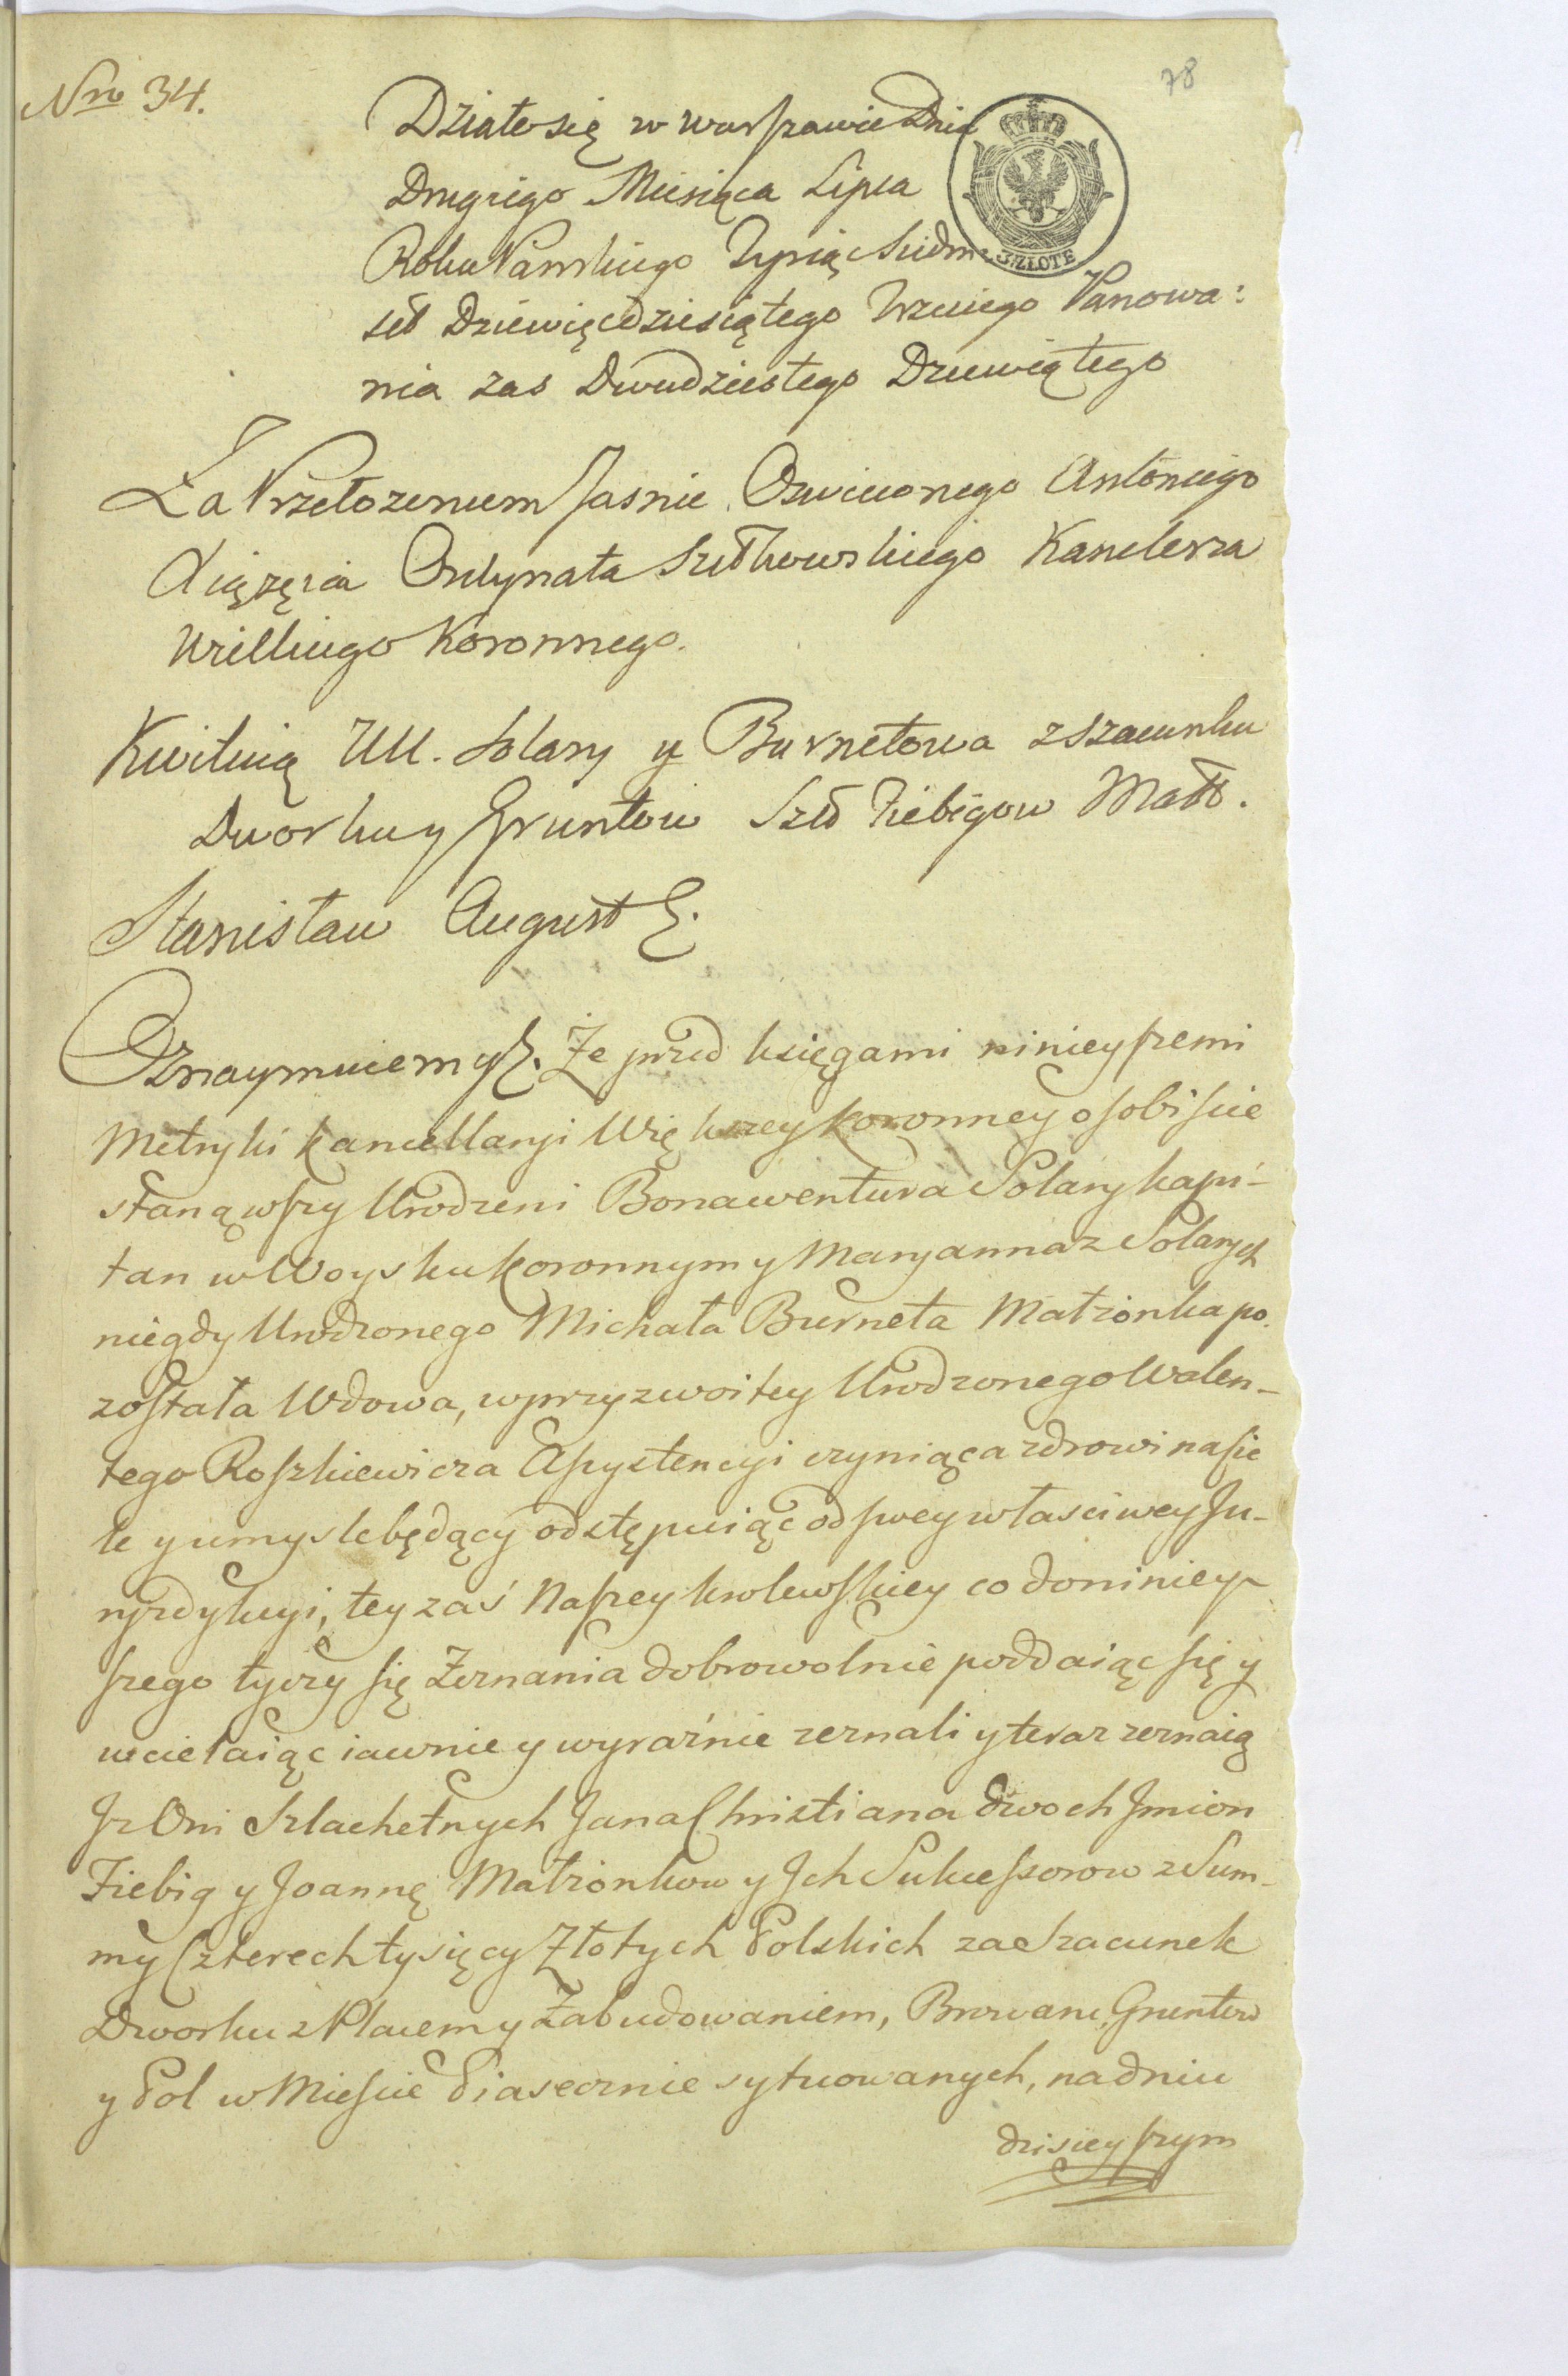 Nro 34.
78
Działo się w Warszawie Dnia
Drugiego Miesiąca Lipca
Roku Pańskiego Tysiąc Siedm-
set Dziewięćdziesiątego Trzeciego Panowa:
nia zas Dwudziestego Dziewiątego
3. ZŁOTE
Za Przełozeniem Jasnie Oswieconego Antoniego
Xiążęcia Ordynata Sułkowskiego Kanclerza
Wielkiego Koronnego.
Kwituią UU. Solary y Burnetowa z szacunku
Dworku y Gruntow Szld Fiebigow Małż.
Stanisław August &.
Oznaymuiemy &. Że przed księgami ninieyszemi
Metryki Kancellaryi Większey Koronney osobiscie
stanąwszy Urodzeni Bonawentura Solary kapi-
tan w Woysku Koronnym y Maryanna z Solarych
niegdy Urodzonego Michała Burneta Małżonka po-
została Wdowa, w przyzwoitey Urodzonego Walen-
tego Roszkiewicza Assystencyi czyniąca zdrowi na cie
le y umysle będący odstępuiąc od swey własciwey Ju-
ryzdykcyi, tey zaś Naszey krolewskiey co do niniey-
szego tyczy się Zeznania dobrowolnie poddaiąc się y
wcielaiąc iawnie y wyraźnie zeznali y teraz zeznaią
Jz Oni Szlachetnych Jana Christiana dwoch Jmion
Fiebig y Joannę Małżonkow y Jch Sukcessorow z Sum-
my Czterech tysięcy Złotych Polskich za Szacunek
Dworku z Placem y Zabudowaniem, Browaru, Gruntow
y Pol w Miescie Piasecznie sytuowanych, na dniu
dzisieyszym